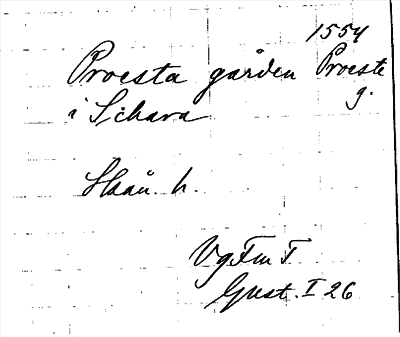 1554
Proesta garden Proeste
g.
i Schara
Skån. h.
VgFmT
Gust. I 26